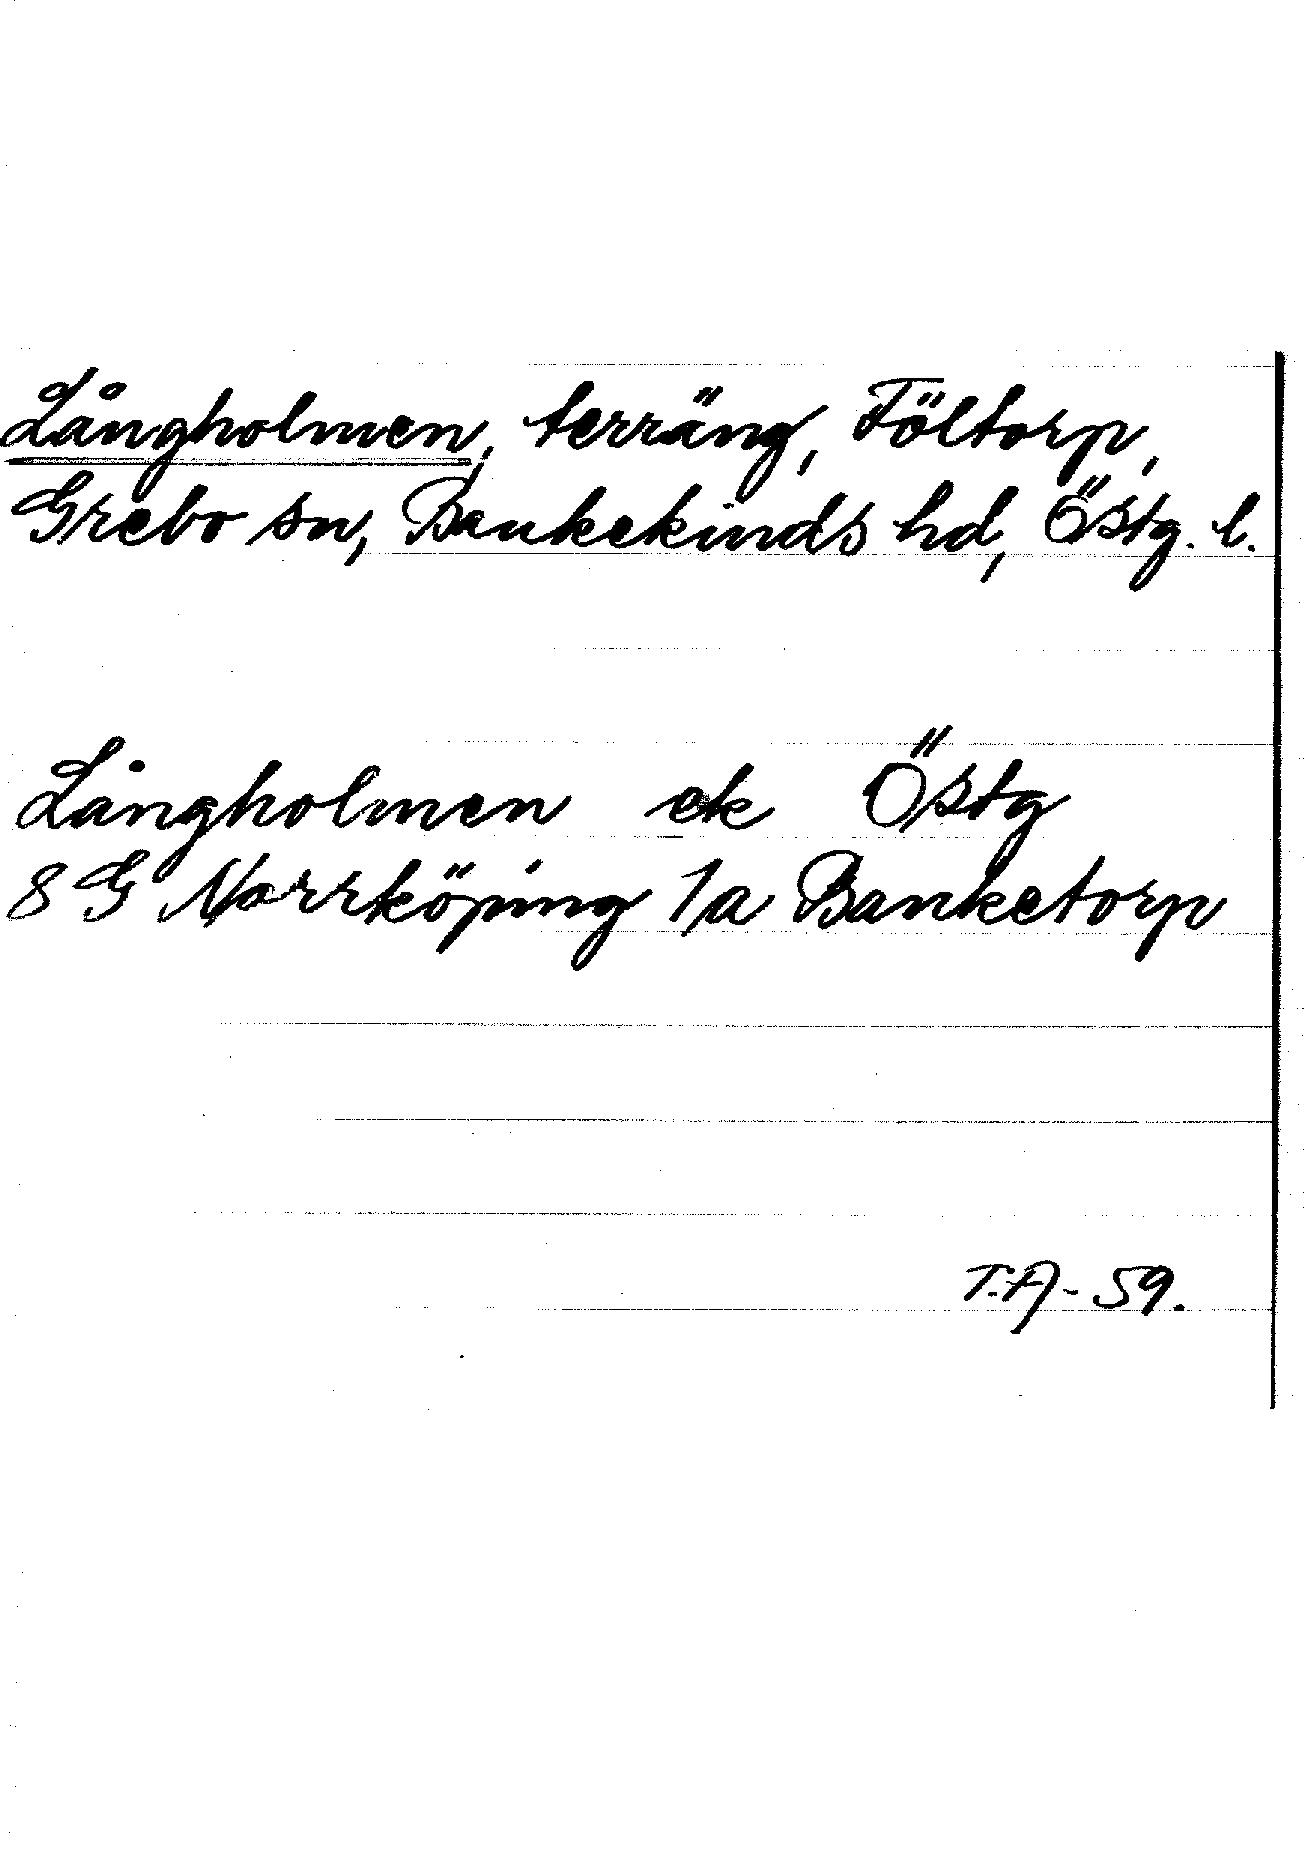 Långholmen, terräng, Föltorp,
Grebo sn, Bankekinds hd, Östg. l.
Långholmen ek Östg
8 G Norrköping 1a Banketorp
T.A-59.